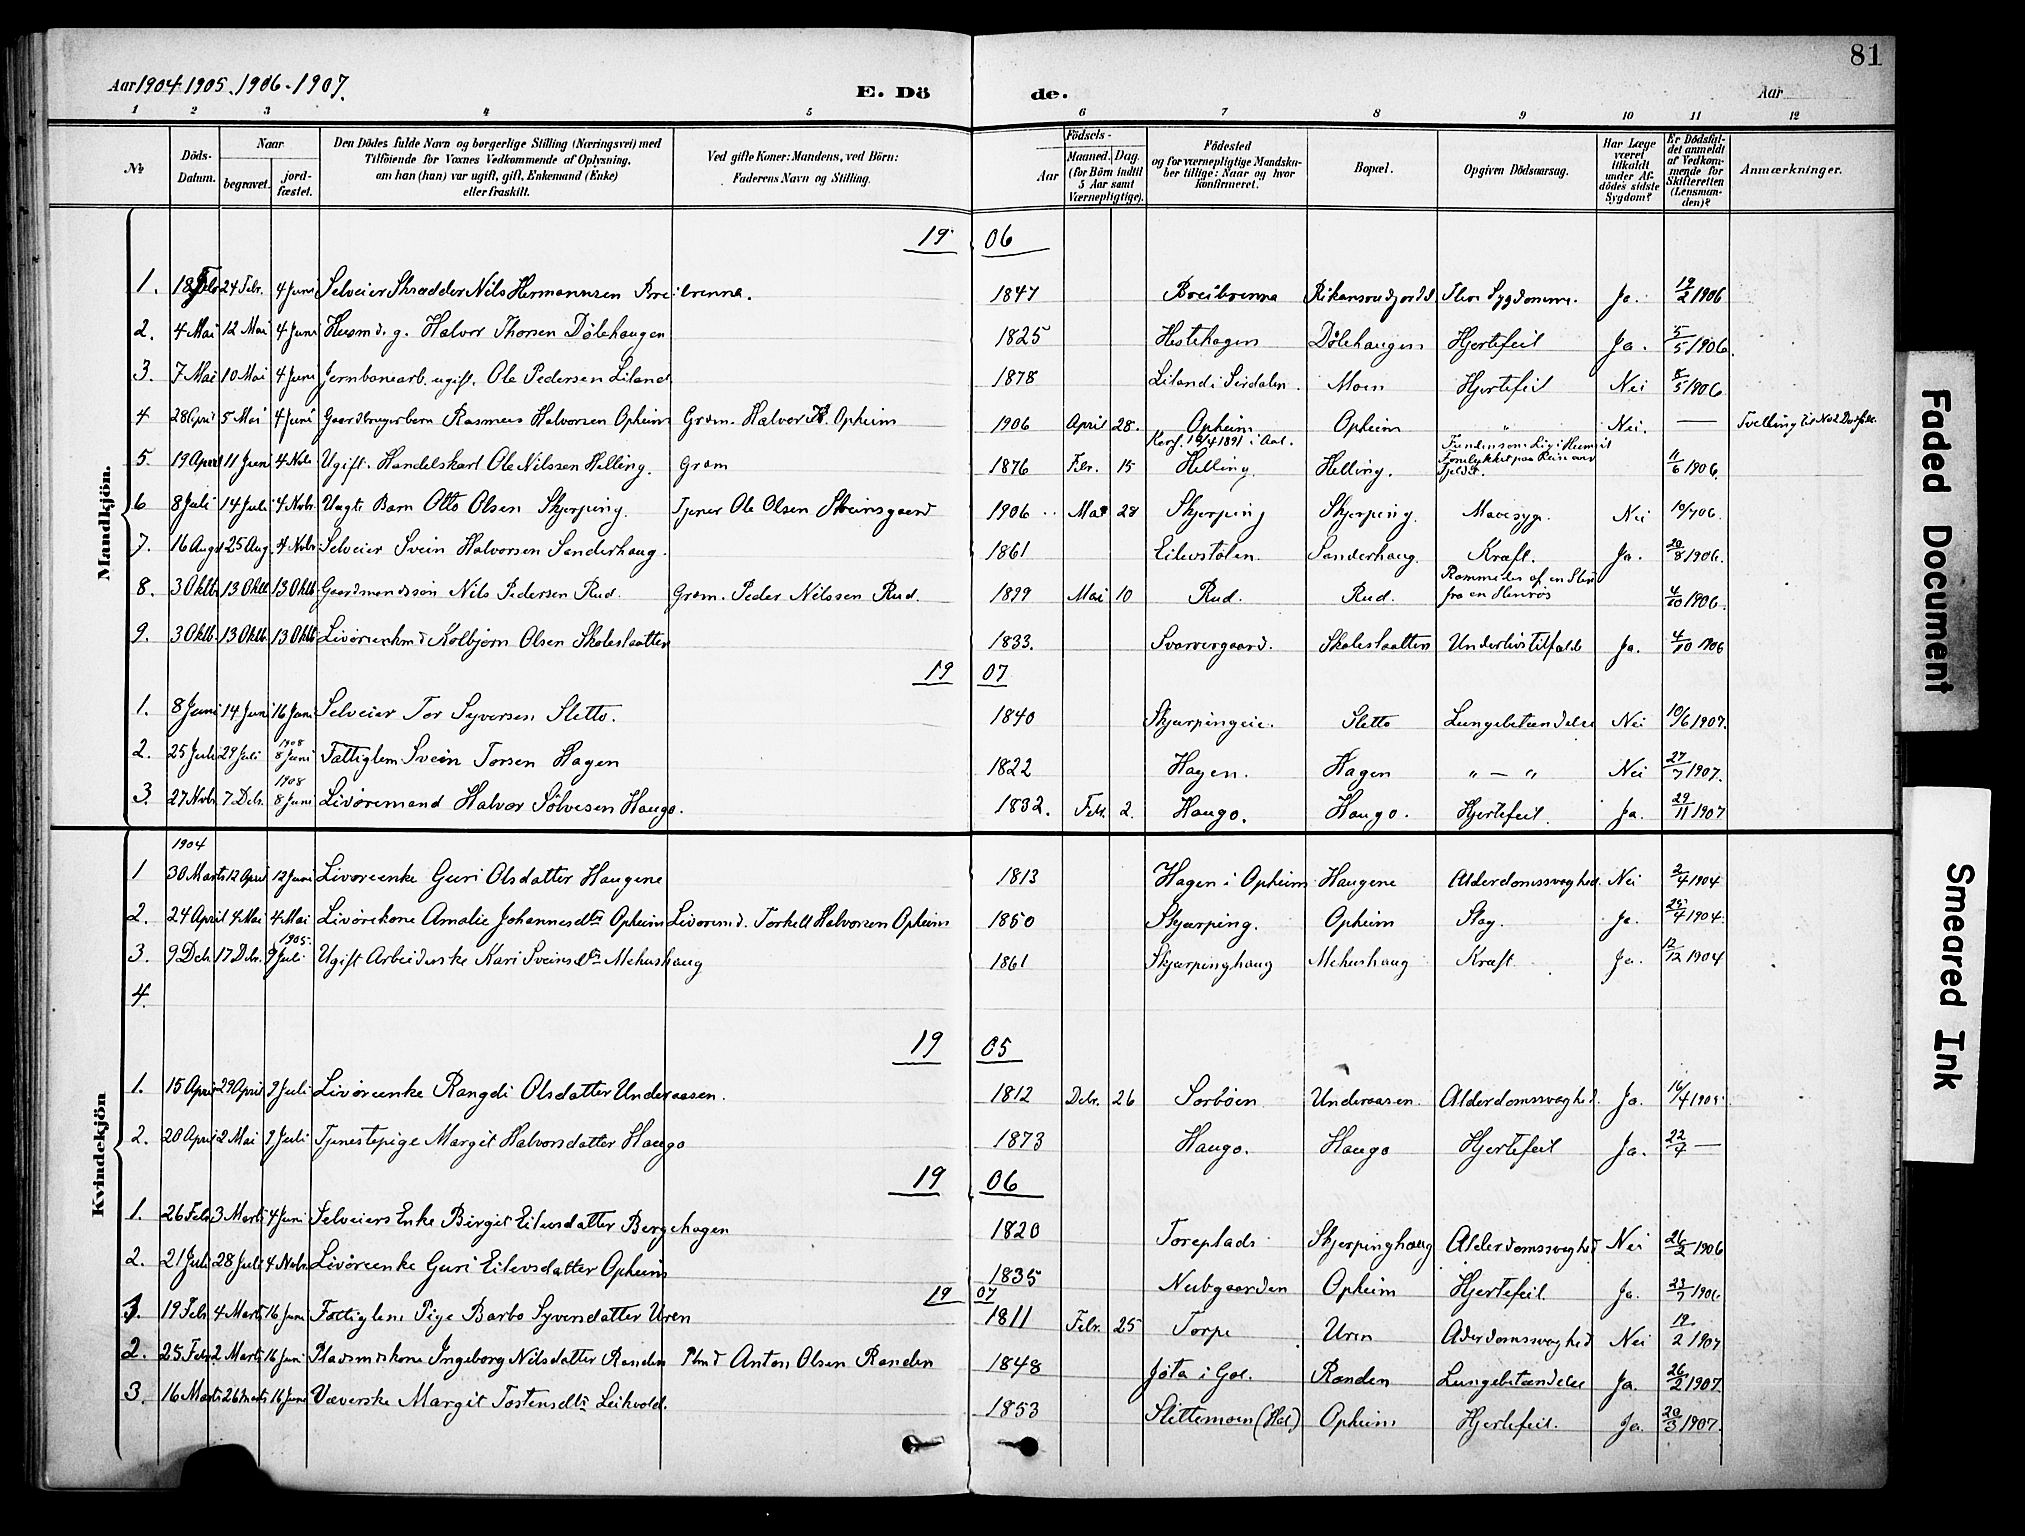 81
Aar 1904-1905. 1906-1907.
E. Dö de.
Aar
1 2 3 4 5 6 7 8 9 10 11 12
№
Döds-Datum.
Naar
begravet.
jord-fæstet.
Den Dödes fulde Navn og borgerlige Stilling (Næringsvei) med
Tilföiende for Voxnes Vedkommende af Oplysning,
om han (hun) var ugift, gift, Enkemand (Enke)
eller fraskilt.
Ved gifte Koner: Mandens, ved Börn:
Faderens Navn og Stilling.
Födsels-
Aar
Maaned.
Dag
(for Börn indtil
5 Aar samt
Værnepligtige).
Födested
og for værnepligtige Mandska-
ber tillige: Naar og hvor
konfirmeret.
Bopæl.
Opgiven Dödsaarsag.
Har Læge
været
tilkaldt
under Af-
dödes sidste
Sygdom?
Er Dödsfal-
det anmeldt
af Vedkom-
mende for
Skifteretten
(Lensman-
den)?
Anmærkninger.
Mandkjön.
19 06
1. 18 Febr 24 Febr. 4 Juni Selveier Skrædder Nils Hermannsen Breibrenna. 1847 Breibrenna Sygdomme. Ja. 19/2 1906
2. 4 Mai 12 Mai 4 Juni Husmd. g. Halvor Thorsen Dölehaugen 1825 Hestehagen Dölehaugen Hjertefeil Ja. 5/5 1906.
3. 7 Mai 10 Mai 4 Juni Jernbanearb. ugift. Ole Pedersen Liland 1878 Liland i Sirdalen. Moen Hjertefeil Nei 8/5 1906
4 28 April 5 Mai 4 Juni Gaardbrugerbarn Rasmus Halvorsen Opheim Grdm. Halvor Opheim 1906 April 28. Opheim Opheim " Nei. — Tvilling til No 2
Konf. 16/4 1891 i Aal.
5. 19 April 11 Juni 4 Nobr Ugift. Handelskarl Ole Nilssen Helling. Grdm 1876 Febr. 15 Helling Helling. 11/6 1906.
6 8 Juli 14 Juli 4 Nvbr. Uægte Barn Otto Olsen Skjerping. Tjener Ole Olsen Skeinsgaard 1906 Mai 28 Skjerping Skjerping. Mavesyge. Nei 10/7 06.
7. 16 Aug 25 Aug. 4 Nvbr. Selveier Svein Halvorsen Sanderhaug. 1861 Eilevstölen. Sanderhaug. Kræft. Ja. 20/8 1906.
8. 3 Oktb. 13 Oktb 13 Oktb Gaardmandssön Nils Pedersen Rud. Grdm. Peder Nilssen Rud. 1899 Mai 10 Rud. Rud. Rammedes af en Sten fra en Stenrös 4/10 1906.
9. 3 Oktb. 13 Oktb. 13 Oktb Livörenkmd Kolbjörn Olsen Skoleslaatten 1833. Svarvergaard. Skoleslaatten Underlivstilfælde Ja. 4/10 1906
19 07
1. 8 Juni 14 Juni 16 Juni Selveier Tor Syversen Sletto. 1840 Skjerpingeie. Sletto Lungebetændelse Nei 10/6 1907.
2. 25 Juli 29 Juli 1908 8 Juni Fattiglem Svein Torsen Hagen 1822 Hagen. Hagen " — " Nei 27/7 1907.
3. 27 Nvbr. 7 Debr. 1908 8 Juni Livöremand Halvor Sölvesen Haugo. 1832. Febr. 2. Haugo. Haugo. Hjertefeil. Ja. 29/11 1907
Kvindekjön
1904
1 30 Marts 12 April 12 Juni Livöreenke Guri Olsdatter Haugene 1813 Hagen i Opheim Haugene Alderdomssvaghed. Nei 2/4 1904
2. 24 April 4 Mai 4 Mai Livörekone Amalie Johannesdtr Opheim Livöremd. Torkell Halvorsen Opheim 1850 Skjerping. Opheim Slag. Ja. 25/4 1904.
3. 9 Debr. 17 Debr. 1905. 9 Juli Ugift Arbeiderske Kari Sveinsdtr Mehushaug 1861 Skjerpinghaug Mehushaug Kræft Ja. 12/12 1904
4.
19 05
1. 15 April 29 April 9 Juli Livöreenke Rangdi Olsdatter Underaasen. 1812 Debr. 26 Sorböen Underaasen. Alderdomssvaghed. Ja. 16/4 1905.
2. 20 April 2 Mai 9 Juli Tjenestepige Margit Halvorsdatter Haugo 1873 Haugo. Haugo Hjertefeil Ja. 22/4 —
19 06
1. 26 Febr 3 Marts 4 Juni Selveiers Enke Birgit Eilevsdatter Bergehagen 1820 Toreplads Skjerpinghaug Alderdomssvaghed Nei 26/2 1906
2. 21 Juli 28 Juli 4 Nvbr. Livöreenke Guri Eilevsdatter Opheim 1835 Nubgaarden Opheim Hjertefeil. Ja. 23/7 1906
19 07
1. 19 Febr 4 Marts 16 Juni Fattiglem Pige Barbo Syversdatter Uren 1811 Febr. 25 Torpe Uren Aderdomssvaghed Nei 19/2 1907
2. 25 Febr 2 Marts 16 Juni Pladsmdskone Ingeborg Nilsdatter Randen Plmd Anton Olsen Randen 1848 Jöta i Gol. Randen Lungebetændelse Ja. 26/2 1907.
3. 16 Marts 26 Marts 16 Juni Væverske Margit Tostensdtr Leikvold. 1853 Slettemoen (Hol) Opheim Hjertefeil. Ja. 20/3 1907.
Faded Document
Smeared Ink